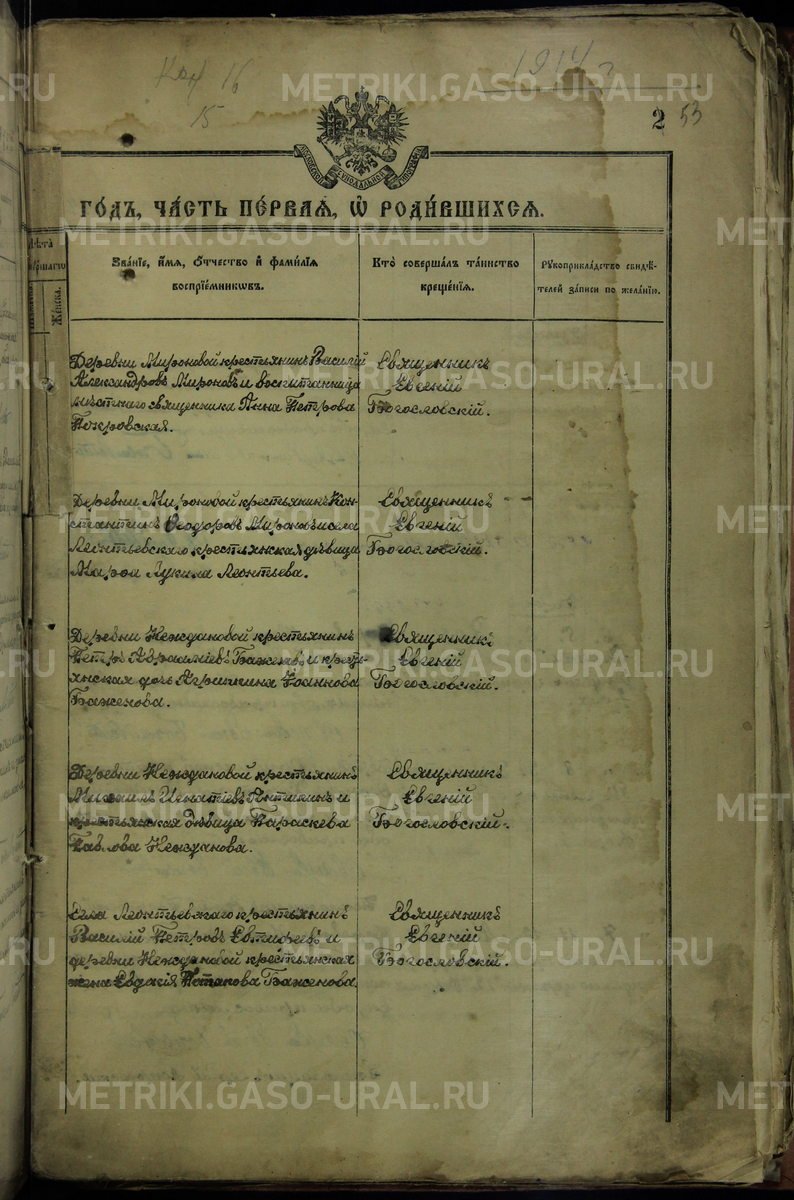 1914
15
2 53
METRIKI.GASO-URAL.RU
МОСКОВСКОЙ СѴНОДАЛЬНОЙ ТИПОГРАФІИ
ГО́ДЪ, ЧА́СТЬ ПЕ́РВАѦ, Ѡ҆ РОДИ́ВШИХСѦ.
Же́нска.
Зва́нїе, и҆́мѧ, Ѻ҆́тчество и҆ фами́лїѧ
воспрїе́мникѡвъ.
Кто̀ соверша́лъ та́инство
креще́нїѧ.
Рꙋкоприкла́дство свидѣ́-
телей за́писи по жела́нїю.
Деревни Мироновой крестьянинъ Василій
Александровъ Мироновъ и воспитанница
мѣстнаго священника Анна Петрова
Покровская.
Священникъ
Евгеній
Богословскій.
Деревни Мироновой крестьянинъ Кон-
стантинъ Ѳеодоровъ Мироновъ и села
Леонтьевскаго крестьянская дѣвица
Лукина Леонтьева.
Священникъ
Евгеній
Богословскій.
Деревни Неждановой крестьянинъ
Петръ Баженовъ, и крест-
ьянская дочь Агриппина Іоаннова
Баженова.
Священникъ
Евгеній
Богословскій.
Деревни Неждановой крестьянинъ
Михаилъ Игнатіевъ и
крестьянская дѣвица Параскева
Павлова Нежданова.
Священникъ
Евгеній
Богословскій.
Села Леонтьевскаго крестьянинъ
Василій Петровъ Евтифеевъ и
деревни Неждановой крестьянская
жена Евдокія Потапова Баженова.
Священникъ
Евгеній
Богословскій.